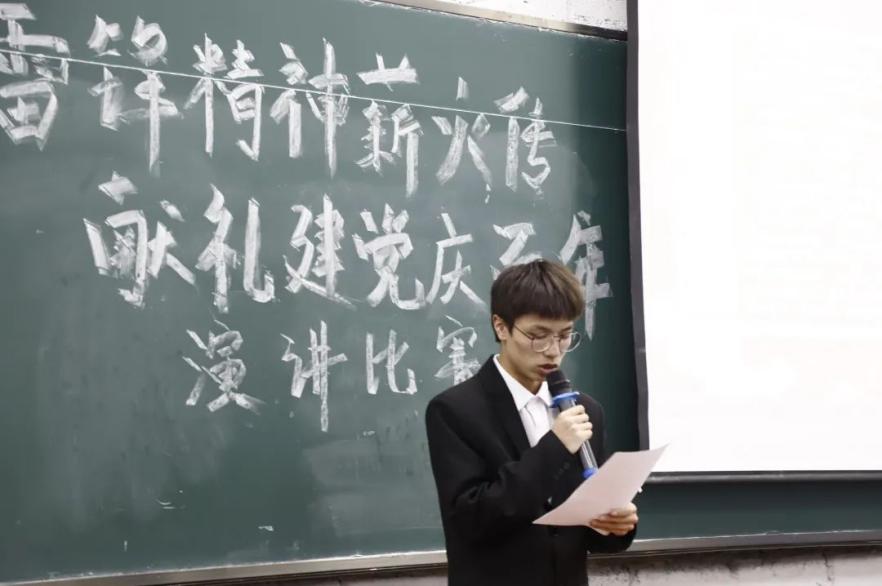 雷锋精神薪火传
献礼建党庆百年
演讲比赛